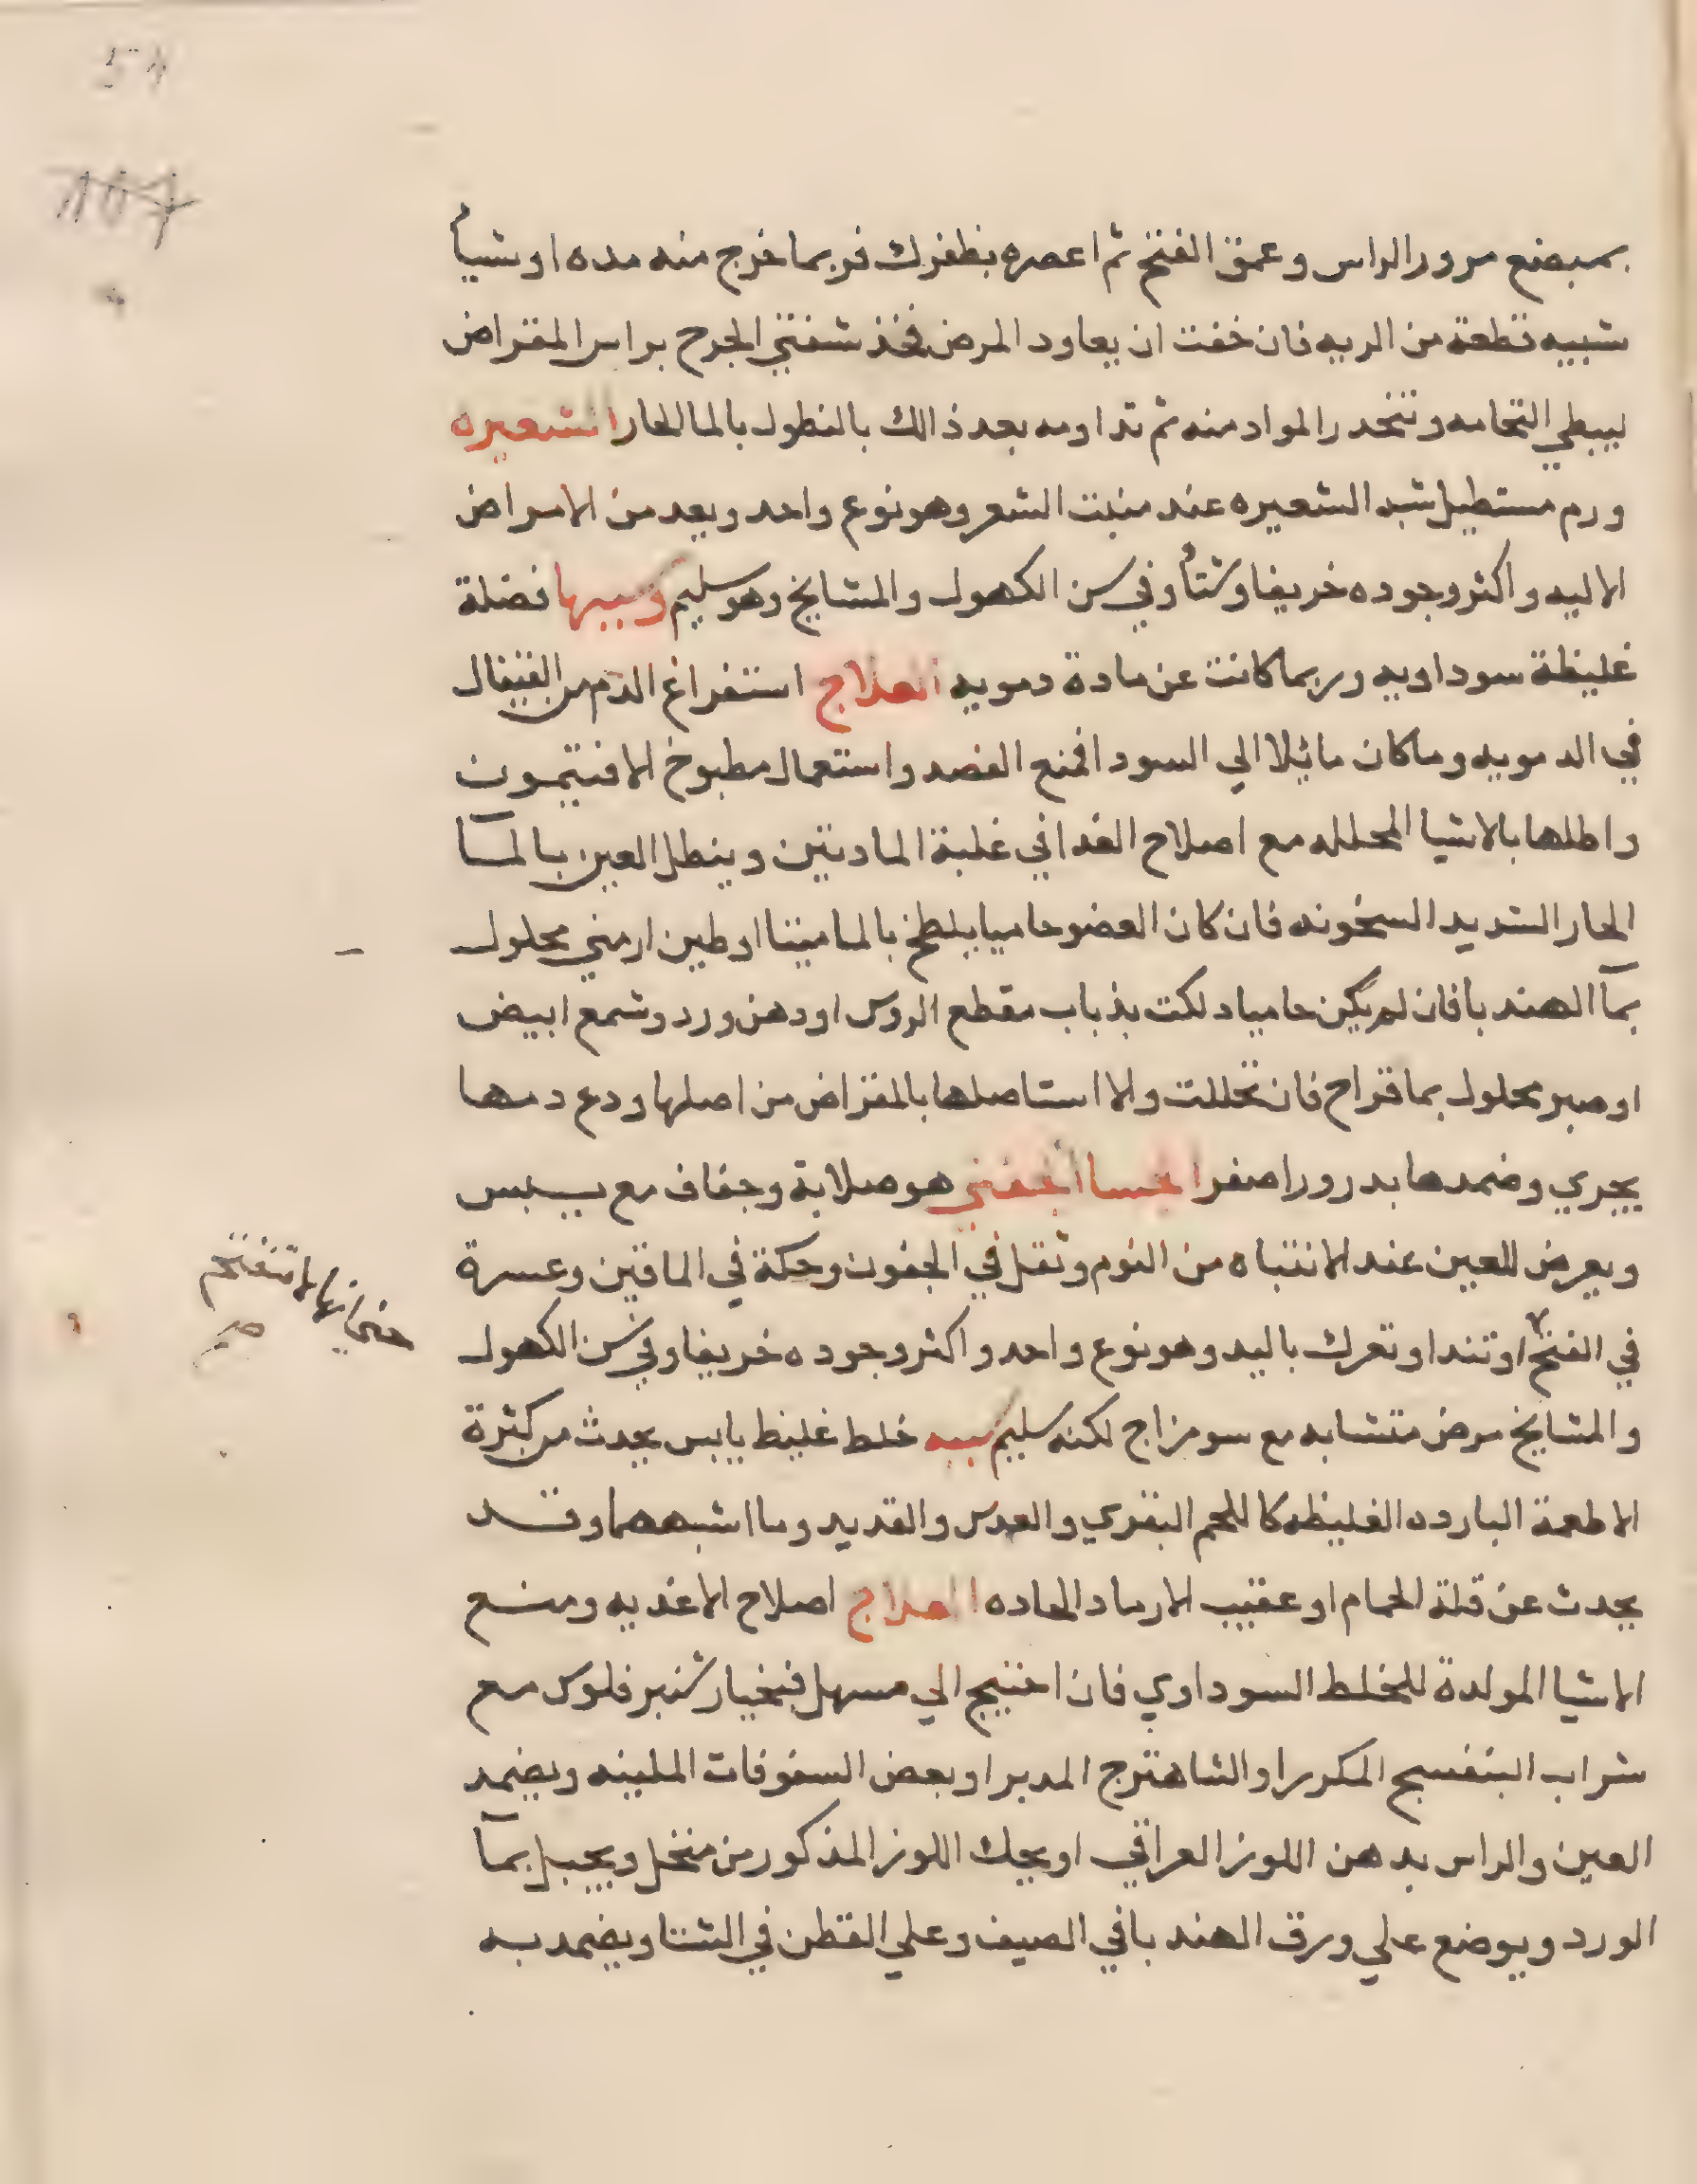 بمبضع مرور الراس وعمق الفتح ثم اعصره بظفرك فربما خرج منه مده اوشيأ
شبيه قطعة من الريه فان خفت ان يعاود المرض فخذ شفتي الجرح براس المقراض
ليبطي التحامه وتنحدر المواد منه ثم تداومه بعد ذالك بالنطول بالما الحار الشعيره
ورم مستطيل شبه الشعيره عند منبت الشعر وهو نوع واحد ويعد من الامراض
الاليه واكثر وجوده خريفا وشتأ وفي سن الكهول والمشايخ وهو سليم وسببها فضلة
غليظة سوداويه وربما كانت عن مادة دمويه العلاج استفراغ الدم من القيفال
في الدمويه وما كان مائلا الي السودا فمنع الفصد واستعمال مطبوخ الافتيمون
واطلها بالاشيا المحلله مع اصلاح الغدا في غلبة المادتين وينطل العين بالمآ
الحار الشديد السخونه فان كان العضو حاميا يلطخ بالماميتا اوطين ارمني محلول
بمآ الهندبا فان لم يكن حاميا دلكت بذباب مقطع الروس اودهن ورد وشمع ابيض
اوصبر محلول بما قراح فان تحللت والا استاصلها بالمقراض من اصلها ودع دمها
يجري وضمدها بدرور اصفر الجسا الجفني هو صلابة وجفاف مع يبس
ويعرض للعين عند الانتباه من النوم وثقل في الجفون وحكة في الماقين وعسرة
في الفتح اوتندا وتعرك باليد وهو نوع واحد واكثر وجوده خريفا وفي سن الكهول
حتي انها لا تنفتح
صح
والمشايخ مرض متشابه مع سو مزاج لكنه سليم سببه خلط غليظ يابس يحدث من كثرة
الاطعمة البارده الغليظه كاللحم البقري والعدس والقديد وما اشبههما وقد
يحدث عن قلة الحمام اوعقيب الارماد الحاده العلاج اصلاح الاغذيه ومنع
الاشيا المولدة للخلط السوداوي فان احتيج الي مسهل فبخيار شنبر فلوس مع
شراب البنفسج المكرر او الشاهترج المدبر اوبعض السفوفات الملينه ويضمد
العين والراس بدهن اللوز العراقي اويحك اللوز المذكور من منخل ويجبل بمآ
الورد ويوضع علي ورق الهندبا في الصيف وعلي القطن في الشتا ويضمد به